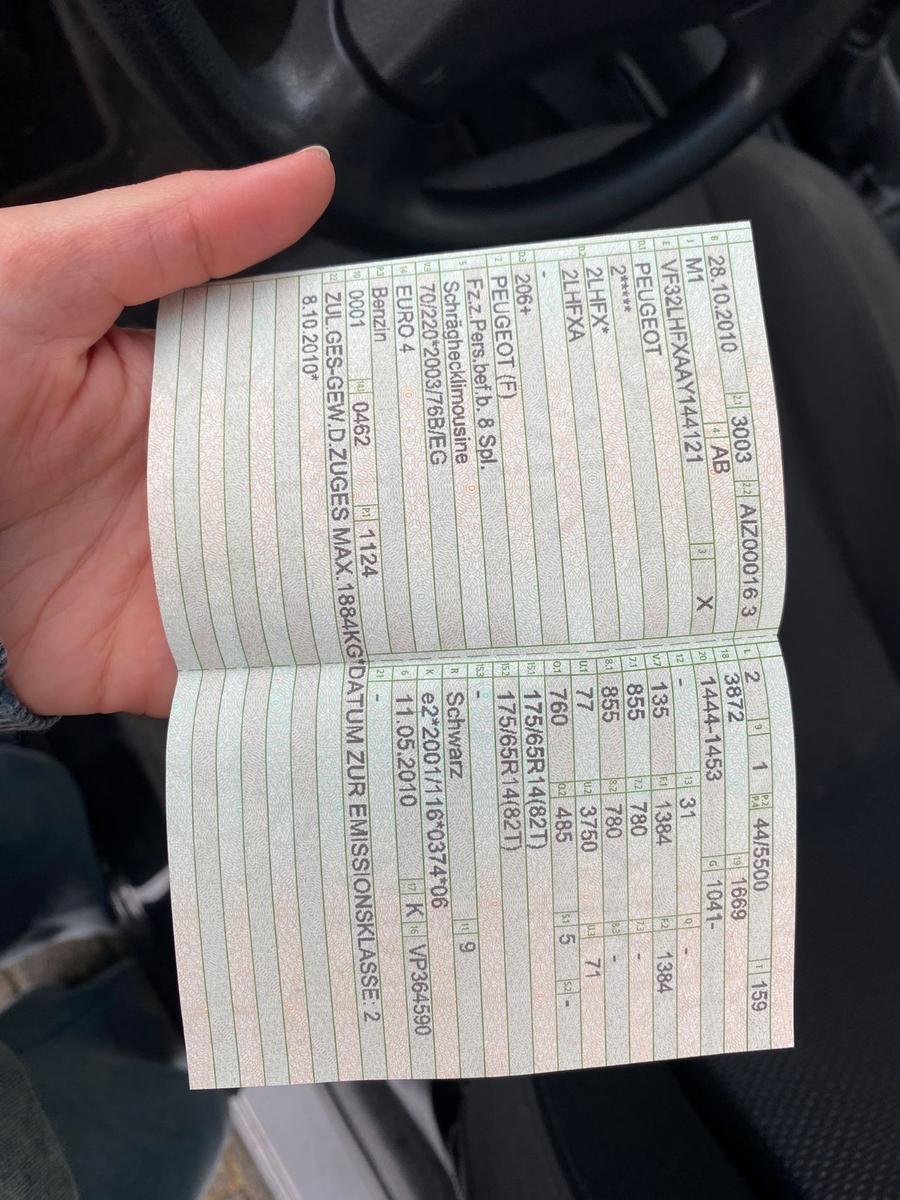 B 28.10.2010 2.1 3003 2.2 AIZ00016 3
J M1 4 AB
E VF32LHFXAAY144121 3 X
D.1 PEUGEOT
D.2 2*****
2LHFX*
2LHFXA
-
D.3 206+
2 PEUGEOT (F)
5 Fz.z.Pers.bef.b. 8 Spl.
Schräghecklimousine
V.9 70/220*2003/76B/EG
14 EURO 4
P.3 Benzin
10 0001 14.1 0462 P.1 1124
22 ZUL.GES-GEW.D.ZUGES MAX.1884KG*DATUM ZUR EMISSIONSKLASSE: 2
8.10.2010*
L 2 9 1 P.2 P.4 44/5500 T 159
18 3872 19 1669
20 1444-1453 G 1041-
12 - 13 31 Q -
V.7 135 F.1 1384 F.2 1384
7.1 855 7.2 780 7.3 -
8.1 855 8.2 780 8.3 -
U.1 77 U.2 3750 U.3 71
O.1 760 O.2 485 S.1 5 S.2 -
15.1 175/65R14(82T)
15.2 175/65R14(82T)
15.3 -
R Schwarz 11 9
K e2*2001/116*0374*06
6 11.05.2010 17 K 16 VP364590
21 -